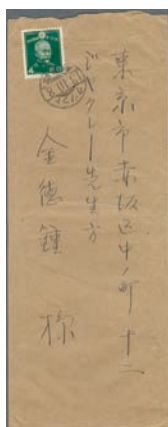 東京市赤坂区中ノ町十二
ジャクレー先生方
金德鍾様